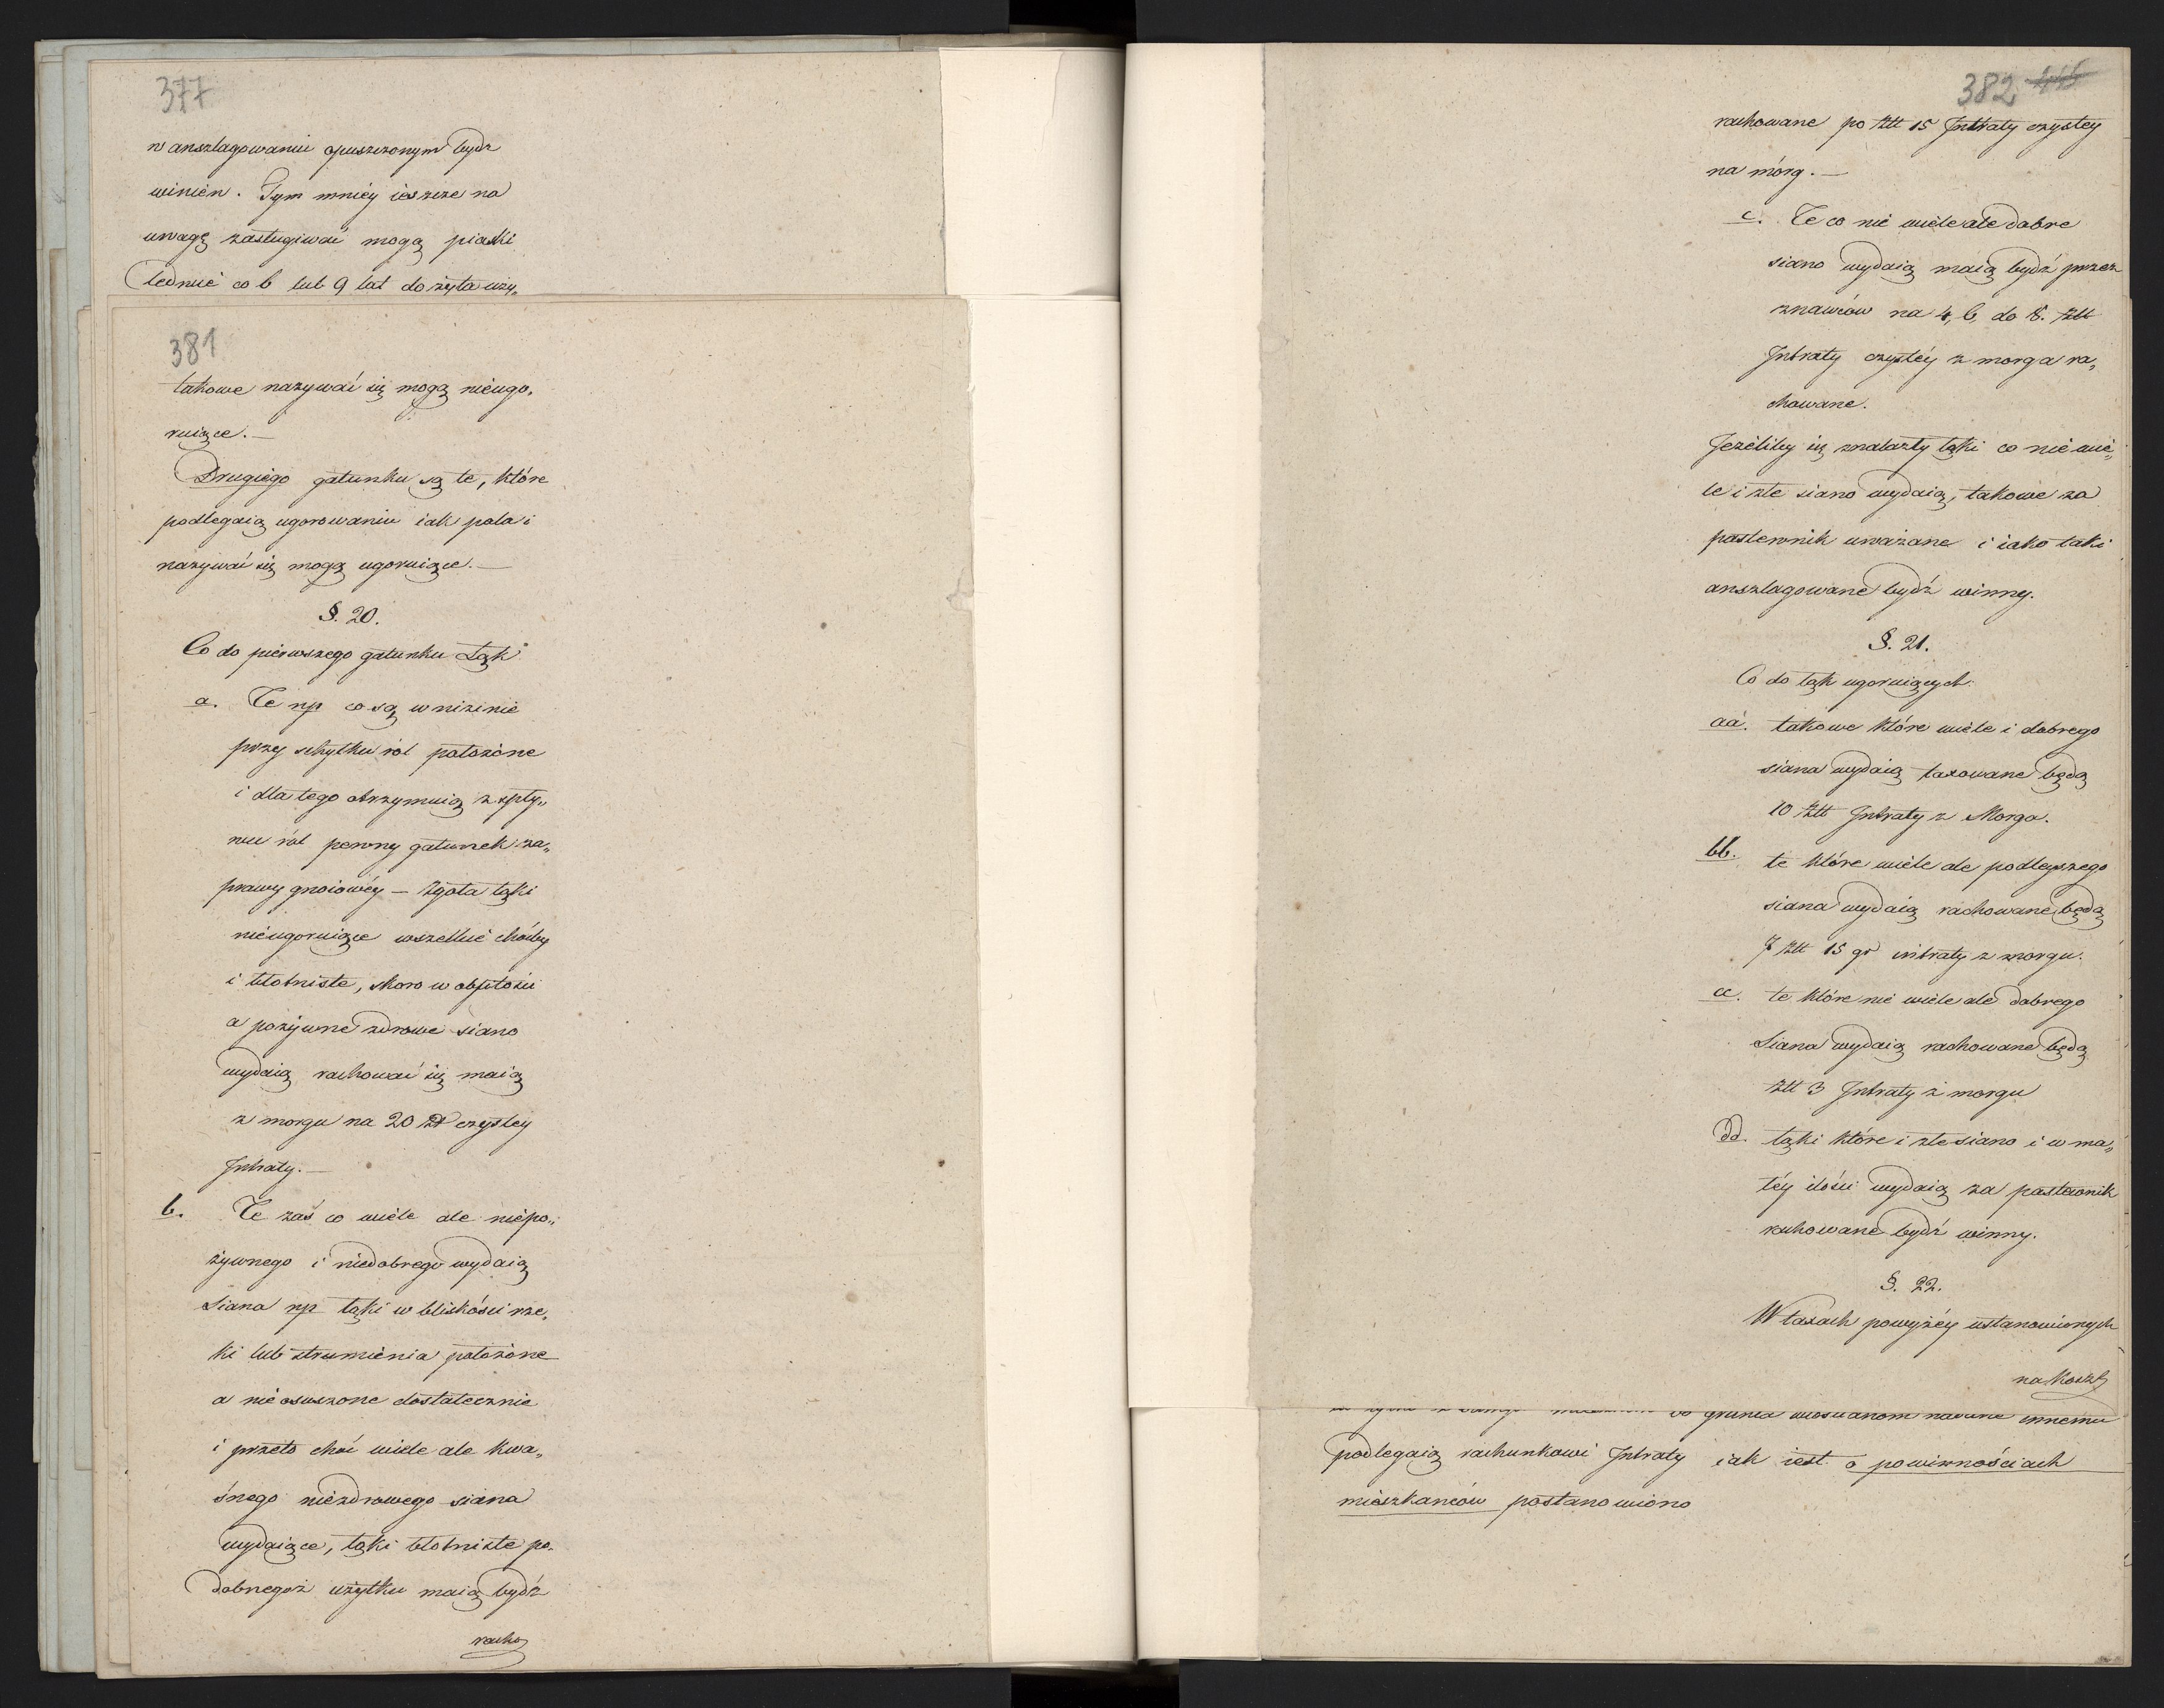 377
w anszlagowaniu opuszczonym bydź
winien. Tym mniéy ieszcze na
uwagę zasługiwać mogą piaski
lednie co 6 lub 9 lat do żyta uży„
381
takowe nazywać się mogą nieugo„
ruiące. —
Drugiego gatunku są te, które
podlegaią ugorowaniu iak pola i
nazywać się mogą ugoruiące. —
§. 20.
Co do pierwszego gatunku Łąk
a. Te np co są w nizinie
przy schyłku ról położone
i dla tego otrzymuią z spły„
wu ról pewny gatunek za„
prawy gnoiowéy — Zgoła łąki
nieugoruiące wszelkie choćby
i błotniste, skoro w obfitości
a pożywne zdrowe siano
wydaią rachować się maią
z morgu na 20 zł czystey
Intraty. —
b. Te zaś co wiele ale niepo„
żywnego i niedobrego wydaią
Siana np łąki w bliskości rze„
ki lub strumienia położone
a nie osuszone dostatecznie
i przeto choć wiele ale kwa„
śnego niezdrowego siana
wydaiące, łąki błotniste po„
dobnegoż użytku maią bydź
racho
382 445
rachowane po Złł 15 Intraty czystey
na mórg. —
c. Te co nie wiele ale dobre
siano wydaią maią bydź przez
znawców na 4, 6, do 8. złł
Intraty czystéy z morga ra„
chowane.
Jeżeliby się znalazły łąki co nie wie„
le i złe siano wydaią, takowe za
pastewnik uważane i iako taki
anszlagowane bydź winny.
§. 21.
Co do łąk ugoruiących.
aa. takowe które wiele i dobrego
siana wydaią taxowane będą
10 Złł Intraty z Morga.
bb. te które wiele ale podleyszego
siana wydaią rachowane będą
7 Złł 15 gr intraty z morgu.
cc. te które nie wiele ale dobrego
Siana wydaią rachowane będą
Złł 3 Intraty z morgu
dd. łąki które i złe siano i w ma„
łéy ilości wydaią za pastewnik
rachowane bydź winny.
§. 22.
W taxach powyżéy ustanowionych
na koszt
grunta włościanom nadane innemu
podlegaią rachunkowi Intraty iak iest o powinnościach
mieszkańców postanowiono